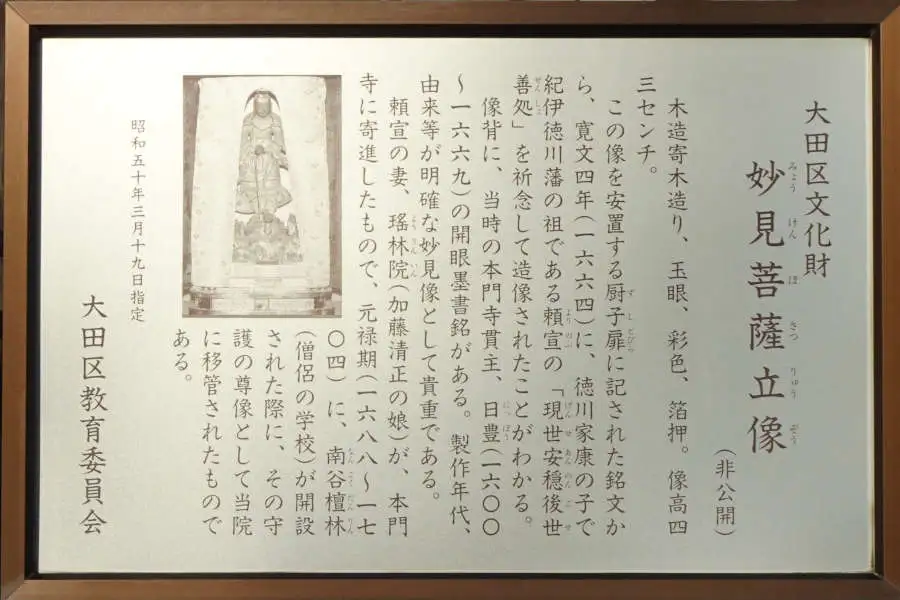 大田区文化財
妙見菩薩立像
(非公開)
木造寄木造り、玉眼、彩色、箔押。像高四
三センチ。
この像を安置する厨子扉に記された銘文か
ら、寛文四年(一六六四)に、徳川家康の子で
紀伊徳川藩の祖である頼宣の「現世安穏後世
善処」を祈念して造像されたことがわかる。
像背に、当時の本門寺貫主、日豊(一六〇〇
〜一六六九)の開眼墨書銘がある。製作年代、
由来等が明確な妙見像として貴重である。
頼宣の妻、瑤林院(加藤清正の娘)が、本門
寺に寄進したもので、元禄期(一六八八〜一七
〇四)に、南谷檀林
(僧侶の学校)が開設
された際に、その守
護の尊像として当院
に移管されたもので
ある。
昭和五十年三月十九日指定
大田区教育委員会